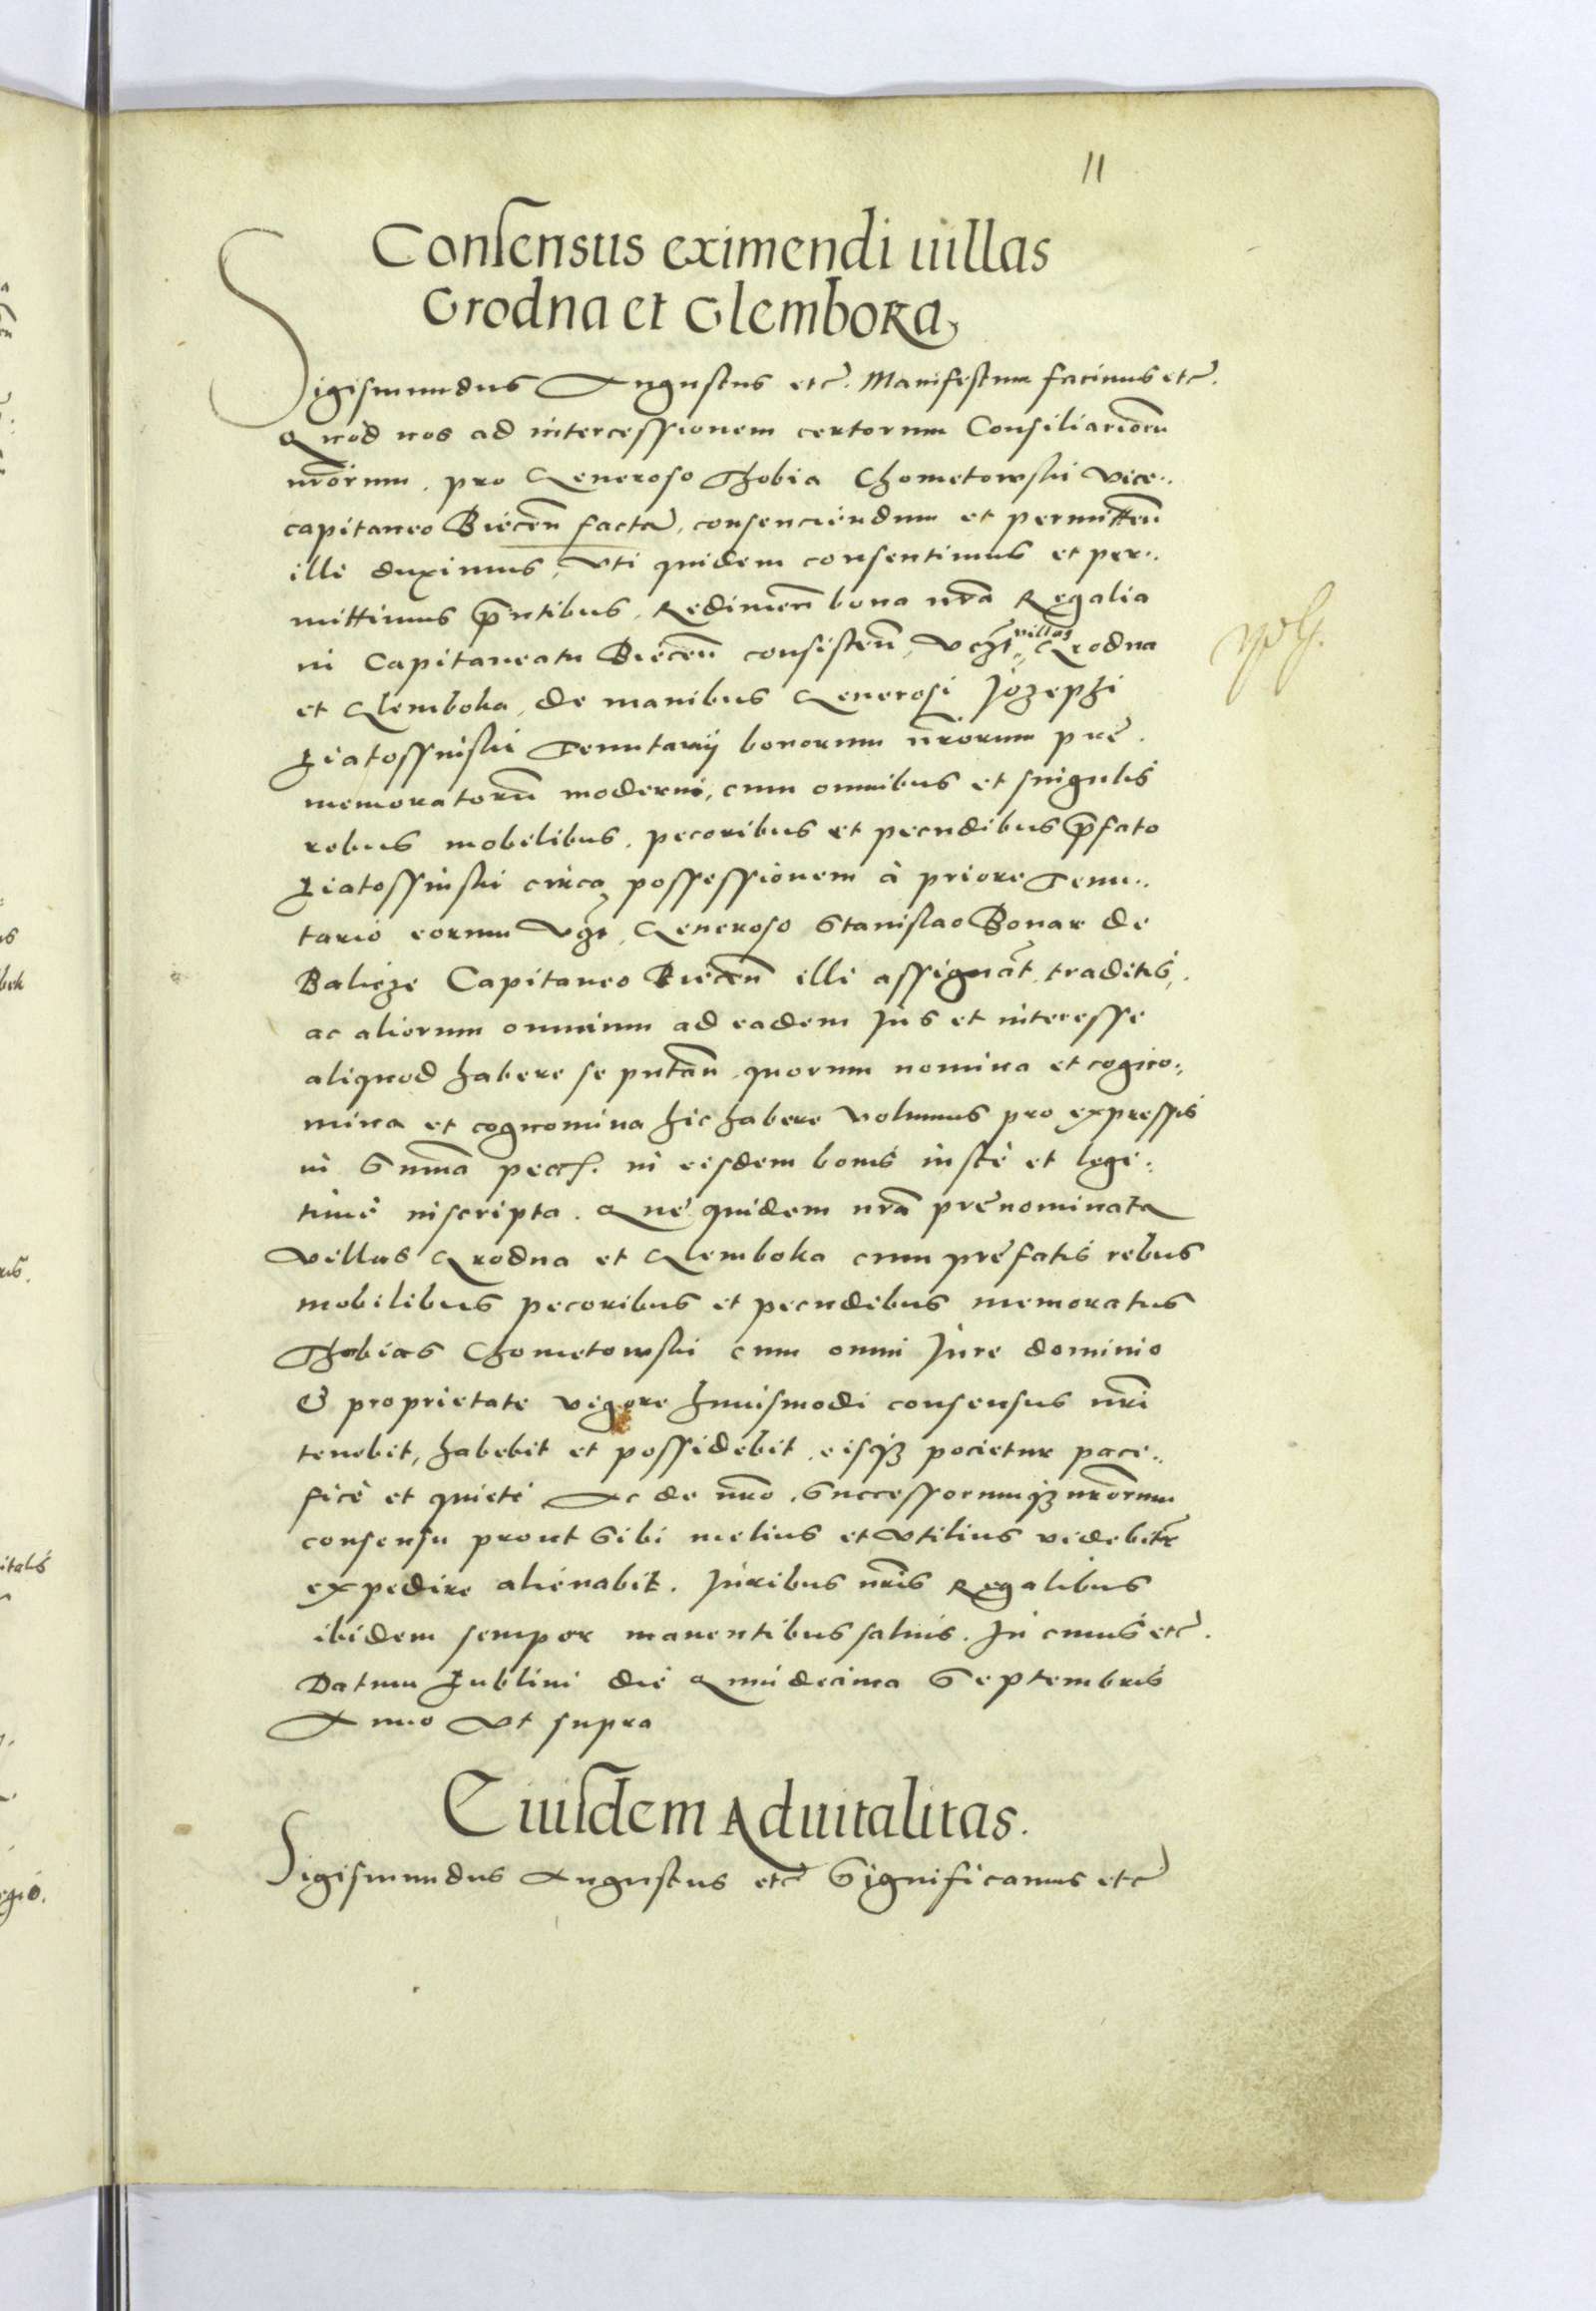 11
Consensus eximendi uillas
Grodna et Glemboka,
Sigismundus Augustus etc. Manifestum facimus etc.
Quod nos ad intercessionem certorum Consiliarioru
nrorum, pro Generoso Thobia Chometowski Vice..
capitaneo Biecen facta, consenciendum et permitten
illi duximus, Vti quidem consentimus et per..
mittimus pntibus, Redimen bona nra Regalia
in Capitaneatu Biecen consisten, Vczt villas Grodna
et Glemboka, de manibus Generosi Jozephi
Latossinski Tenutarij bonorum nrorum pre.
memoratoru moderni, cum omnibus et singulis
rebus mobilibus, pecoribus et pecudibus pfato
Latossinski circa possessionem à priore Tenu..
tario eorum Vgt, Generoso Stanislao Bonar de
Balicze Capitaneo Biecen illi assignat, traditis,
ac aliorum omnium ad eadem Jus et interesse
aliquod habere se putan, quorum nomina et cogno..
mina et cognomina hic habere Volumus pro expressis
in Suma pecch. in eisdem bonis iuste et legi:
time inscripta. Que quidem nra prenominata
Villas Grodna et Glemboka cum prefatis rebus
mobilibus pecoribus et pecudibus memoratus
Thobias Chometowski cum omni Jure dominio
& proprietate vigore huiusmodi consensus nri
tenebit, habebit et possidebit, eisqz pocietur paci..
fice et quiete Ac de nro, Successorumqz nrorum
consensu prout Sibi melius et Vtilius videbitr
expedire alienabit. Juribus nris Regalibus
ibidem semper manentibus saluis. In cuius etc.
Datum Lublini die Quindecima Septembris
Anno Vt supra
Eiusdem Aduitalitas.
Sigismundus Augustus etc Significamus etc